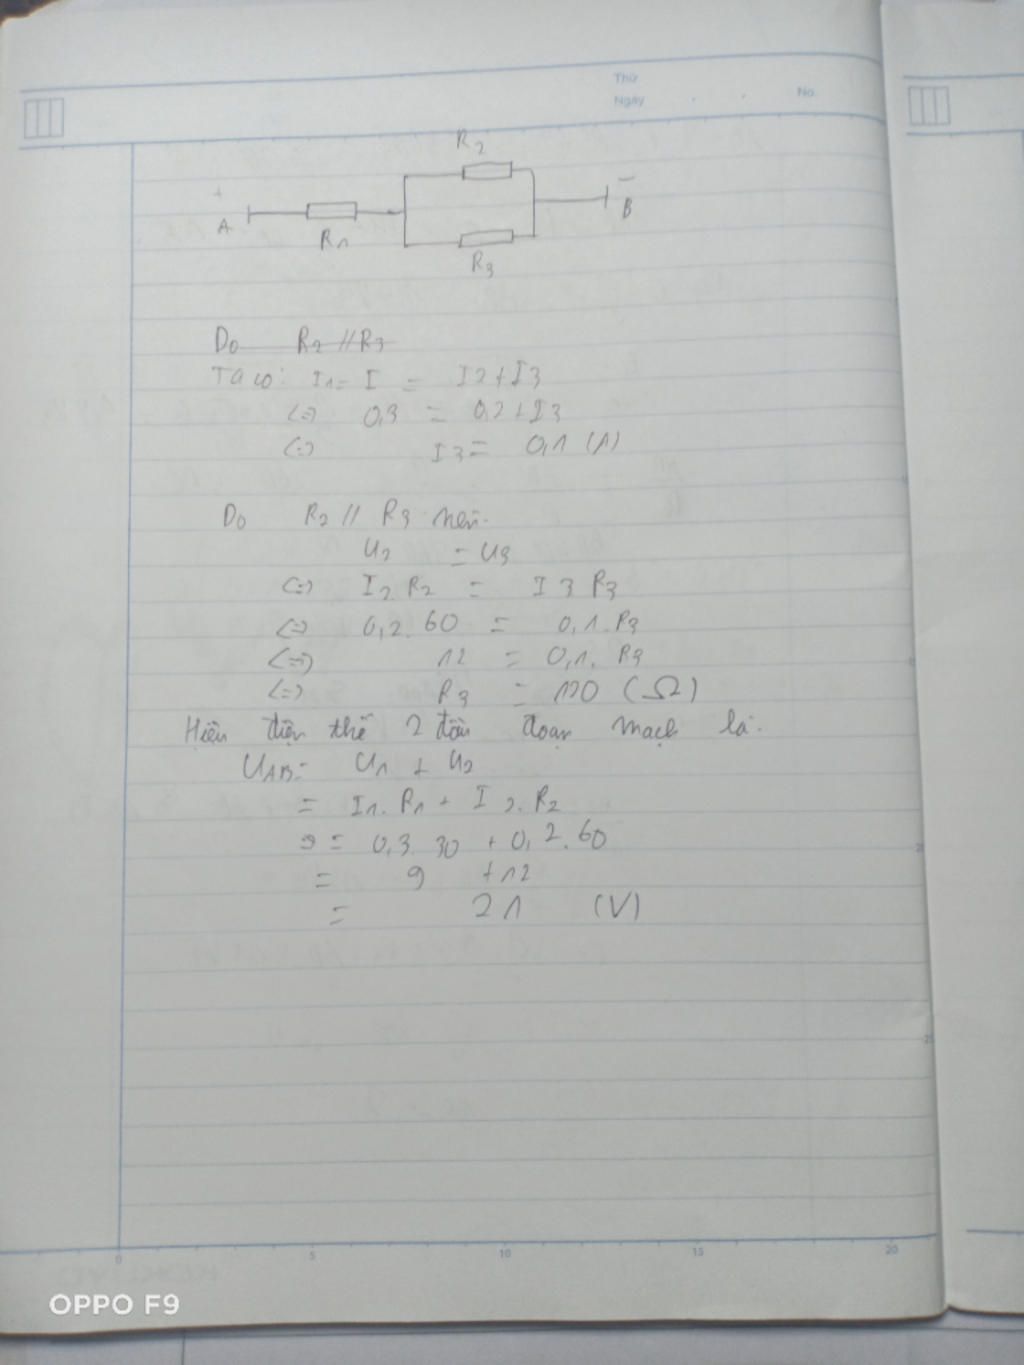 Thứ
Ngày . . No.
R2
+ −
A B
R1
R3
Do R2 // R3
Ta có: I1 = I = I2 + I3
<=> 0,3 = 0,2 + I3
<=> I3 = 0,1 (A)
Do R2 // R3 nên.
U2 = U3
<=> I2 R2 = I3 R3
<=> 0,2. 60 = 0,1. R3
<=> 12 = 0,1. R3
<=> R3 = 120 (Ω)
Hiệu điện thế 2 đầu đoạn mạch là.
UAB = U1 + U2
= I1. R1 + I2. R2
= 0,3. 30 + 0,2. 60
= 9 + 12
= 21 (V)
0 5 10 15 20
OPPO F9